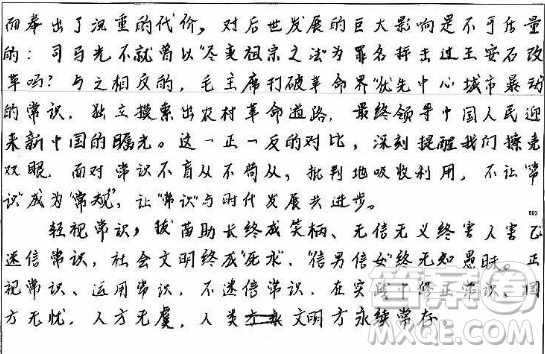 而牵出了沉重的代价，对后世发展的巨大影响是不可估量
的：司马光不就曾以“尽变祖宗之法”为罪名抨击过王安石改
革吗？与之相反的，毛主席打破革命界“优先中心城市暴动”
的常识，独立摸索出农村革命道路，最终领导中国人民迎
来新中国的曙光。这一正一反的对比，深刻提醒我们擦亮
双眼，面对常识不盲从不苟从，批判地吸收利用，不让“常
识”成为“常规”，让“常识”与时代发展共进步。
轻视常识，拔苗助长终成笑柄、无信无义终害人害己
迷信常识，社会文明终成“死水”、“信男信女”终无知愚昧。正
视常识、运用常识，不迷信常识，在实践中修正常识，国
方无忧，人方无虞，人类文明方永续常存。